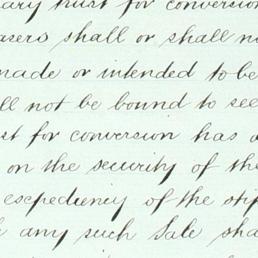 ary trust for conversion
asers shall or shall no
made or intended to be
ll not be bound to see
st for conversion has a
on the security of the
expediency of the stip
any such Sale sha